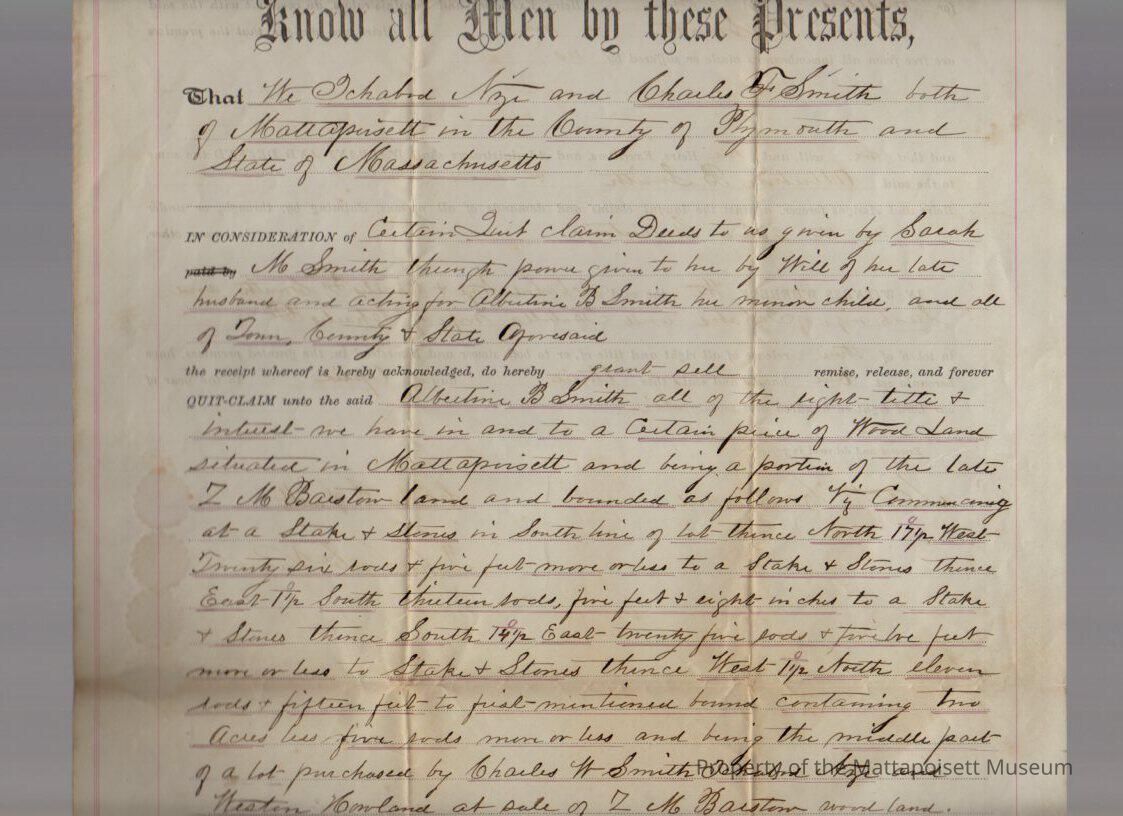 Know all Men by these Presents,
That We Ichabod Nye and Charles F Smith both
of Mattapoisett in the County of Plymouth and
State of Massachusetts
IN CONSIDERATION of Certain Quit claim Deeds to us given by Sarah
paid by M Smith through power given to her by Will of her late
husband and acting for Albertine B Smith her minor child, and all
of Town, County & State Aforesaid
the receipt whereof is hereby acknowledged, do hereby grant sell remise, release, and forever
QUIT-CLAIM unto the said Albertine B Smith all of the right title &
interest we have in and to a Certain piece of Wood Land
situated in Mattapoisett and being a portion of the late
Z M Barstow land and bounded as follows Viz Commencing
at a Stake & Stones in South line of lot thence North 17½° West
Twenty six rods & five feet more or less to a Stake & Stones thence
East 1½° South thirteen rods, five feet & eight inches to a Stake
& Stones thence South 14½° East twenty five rods & twelve feet
more or less to Stake & Stones thence West 1½° North eleven
rods & fifteen feet to first mentioned bound containing two
Acres less five rods more or less and being the middle part
of a lot purchased by Charles W Smith Ichabod Nye and
Weston Howland at sale of Z M Barstow wood land.
Property of the Mattapoisett Museum